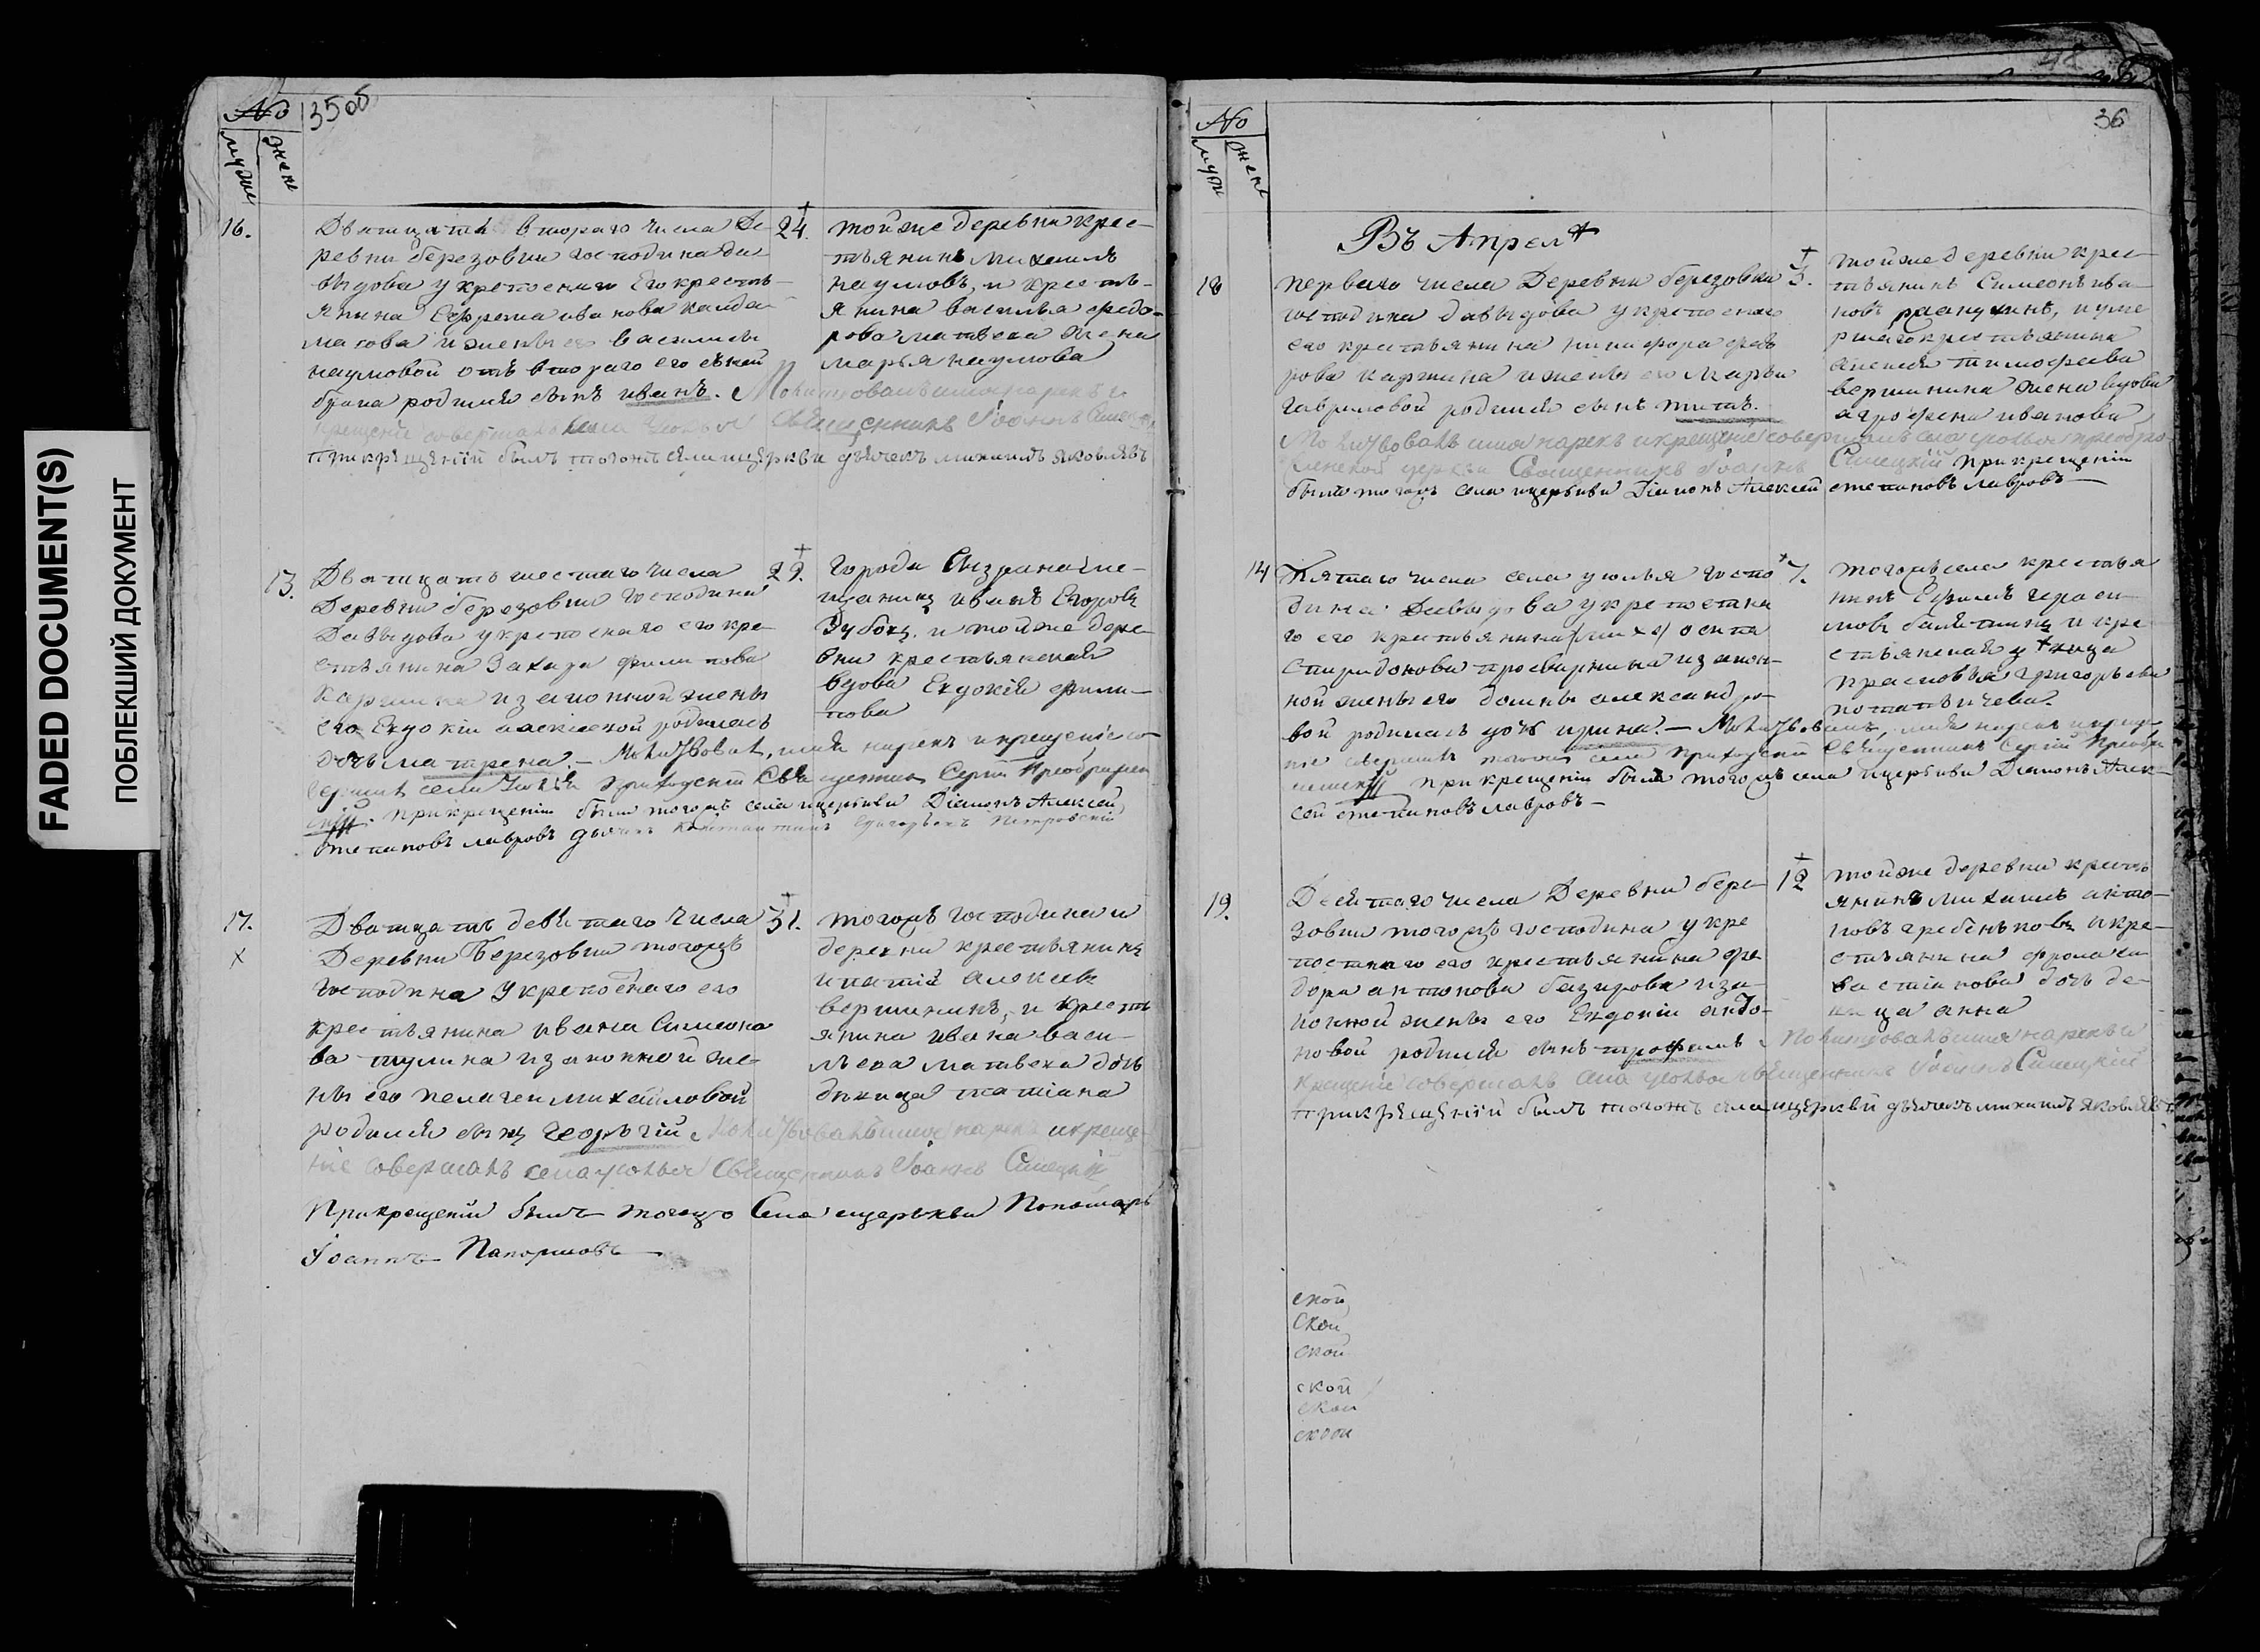 FADED DOCUMENT(S)
ПОБЛЕКШИЙ ДОКУМЕНТ
No
муже
жене
35об
16.
Дватцать втораго числа Де-
ревни березовки господина да-
выдова укрепоснаго Его кресть-
янина Ефрема иванова
и жены его василисы
наумовой отъ втораго его
брака родился сынъ иванъ. Молитвовалъ имя нарекъ и
крещение совершалъ села Усолья Священникъ Иоаннъ
При крещении былъ тогожъ села и церкви дьячекъ михаилъ яковлевъ
24.
тойже деревни крес-
тьянинъ Михаилъ
наумовъ, и кресть-
янина василья федо-
рова матвеева жена
марья наумова
13.
Дватцать шестаго числа
Деревни березовки господина
Давыдова укрепоснаго его кре-
стьянина Захара филипова
каршина из законной жены
его Евдокии алексиевой родилась
дочь матрена. — Молитвовалъ, имя нарекъ и крещение со-
вершилъ села Усолья Приходский Священникъ Сергий Преображен
ский. При крещении были тогожъ села и церкви Диаконъ Алексей
степановъ лавровъ дьячекъ Константинъ Петровский
29.
города Сызрана ме-
щанинъ иванъ Егоровъ
Зубокъ. и тойже дере-
вни крестьянская
вдова Евдокия фили-
пова
17.
х
Дватцать девятаго числа
Деревни Березовки тогожъ
господина Укрепоснаго его
крестьянина ивана Симеоно
ва тулина из законной же-
ны его пелагеи михайловой
родился сынъ георьгий. Молитвовалъ имя нарекъ и креще-
ние совершалъ села усолья Священникъ Иоаннъ Силецкий
При крещении былъ тогожъ Села и церькви Понамарь
Иоаннъ Папорновъ
31.
тогожъ господина и
деревни крестьянинъ
ипатий алексеевъ
вершининъ, и кресть
янина ивана васи-
льева матвеева дочь
девица татиана
No
муже
жене
36
Въ Апреля
18
Перваго числа Деревни березовки
господина давыдова укрепоснаго
его крестьянина никифора федо
рова каржина и жены его Марьи
гавриловой родился сынъ титъ.
Молитвовалъ имя нарекъ и крещение совершалъ села усолья преобра-
женской церкви Священникъ Иоаннъ Силецкий При крещении
были тогожъ села и церкви Диаконъ Алексей степановъ лавровъ —
3.
тойже деревни крес-
тьянинъ Симеонъ ива-
новъ, и уме
ршаго крестьянина
алексея тимофеева
вершинина жена вдова
агрофена иванова
14
Пятаго числа села усолья госпо
дина Давыдова укрепостна
го его крестьянина осипа
спиридонова просвирнина из закон-
ной жены его домны александро-
вой родилась дочь ирина. — Молитвовалъ, имя нарекъ и креще-
ние совершилъ тогожъ села Приходский Священникъ Сергий Преобра
женский При крещении былъ тогожъ села и церькви Диаконъ Алек-
сей степановъ лавровъ —
7.
тогожъ села крестья
нинъ Ефимъ гераси-
мовъ и кре
стьянская
прасковья григорьева
19.
Десятаго числа Деревни бере-
зовки тогожъ господина укре
постнаго его крестьянина фе-
дора антонова базарова из за-
конной жены его Евдокии
новой родился сынъ трофимъ. Молитвовалъ имя нарекъ и
крещение совершалъ села усолья священникъ Иоаннъ Силецкий
При крещении былъ тогожъ села и церкви дьячекъ михаилъ яковлевъ
12
тойже деревни кресть
янинъ михаилъ анто-
новъ гребеньковъ и кре-
стьянина фрола са
вастианова дочь де-
вица анна
ской
ской
ской
ской
ской
ской